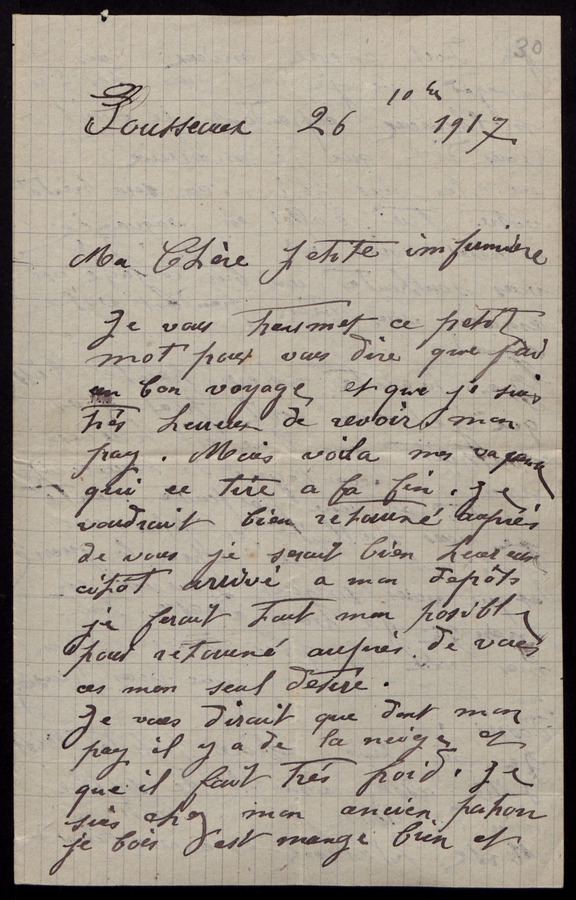 30
10bre
26 1917
Ma Chère petite imfirmière
Je vous transmet ce petit
mot pour vous dire que j'ai
un bon voyage et que je suis
très heureux de revoir mon
pay. Mais voila mes
qui se tire a sa fin. Je
voudrait bien retourné auprès
de vous je serait bien heureux
citôt arrivé a mon depôts
je ferait tout mon posible
pour retourné auprès de vous
ces mon seul désire.
Je vous dirait que dont mon
pay il y a de la neige et
que il fait très froid. Je
suis chez mon ancien patron
je bois d'est mange bien et